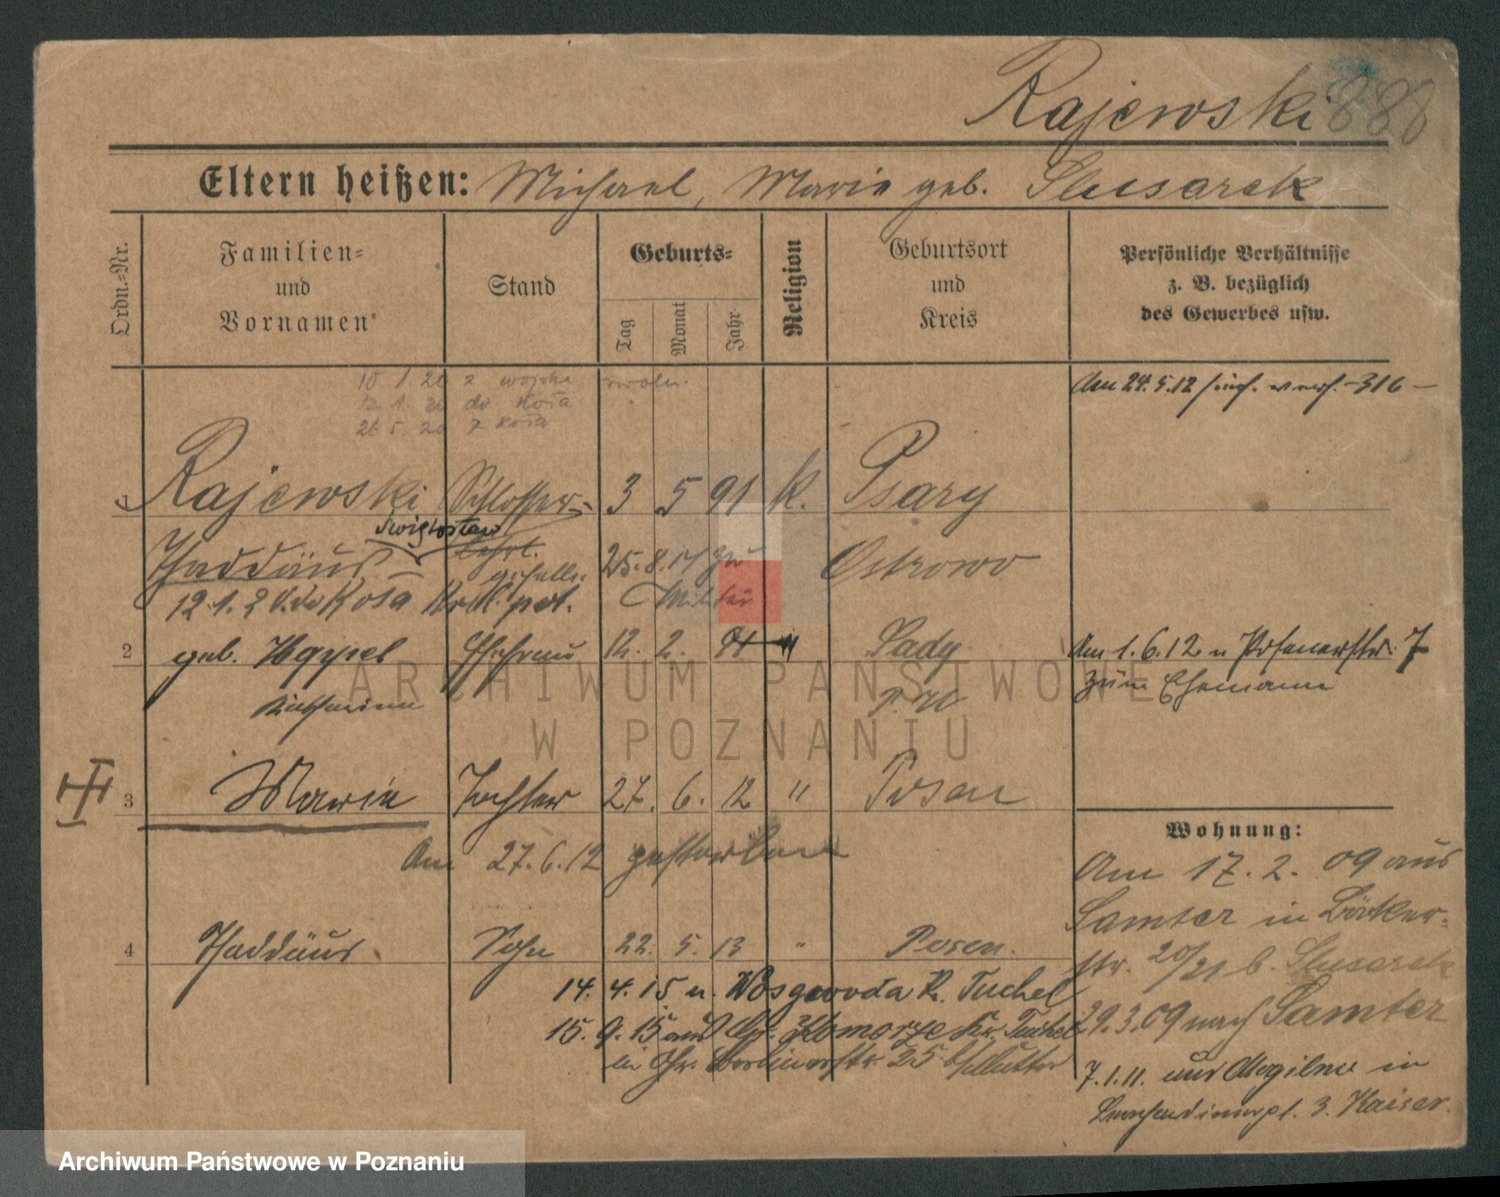 Rajewski 888
Eltern heißen: Michael, Marie geb. Slusarek
Ordn.-Nr.
Familien-
und
Vornamen
Stand
Geburts-
Tag
Monat
Jahr
Religion
Geburtsort
und
Kreis
Persönliche Verhältnisse
z. B. bezüglich
des Gewerbes usw.
10 1. 20 z wojska
12. 1. 20 do Koła
26 5. 20 z Koła
Am 24.5.12 -316-
1 Rajewski Schlosser- 3 5 91 k. Psary
Świętosław
Thaddäus Lehrl. 25.8.17 zu Ostrowo
geselle
12.1.20 do Koła pot. Militär
2 geb. Heppel Ehefrau 12. 2. 91 " Lady Am 1.6.12 n Posenerstr. 7
Katharina zum Ehemann
3 Marie Tochter 27. 6. 12 " Posen
Am 27.6.12 gestorben
4 Thaddäus Sohn 22. 5. 13 " Posen.
14. 4. 15 n. Wosgowoda K. Tuchel
15. 9. 15 aus Klomorze Kr. Tuchel
in Berlinerstr. 25 b/Mutter
Wohnung:
Am 17. 2. 09 aus
Samter in Bäcker-
str. 20/21 b. Slusarek
29.3.09 nach Samter
7.1.11. aus Mogilno in
3. Kaiser.
ARCHIWUM PAŃSTWOWE
W POZNANIU
Archiwum Państwowe w Poznaniu